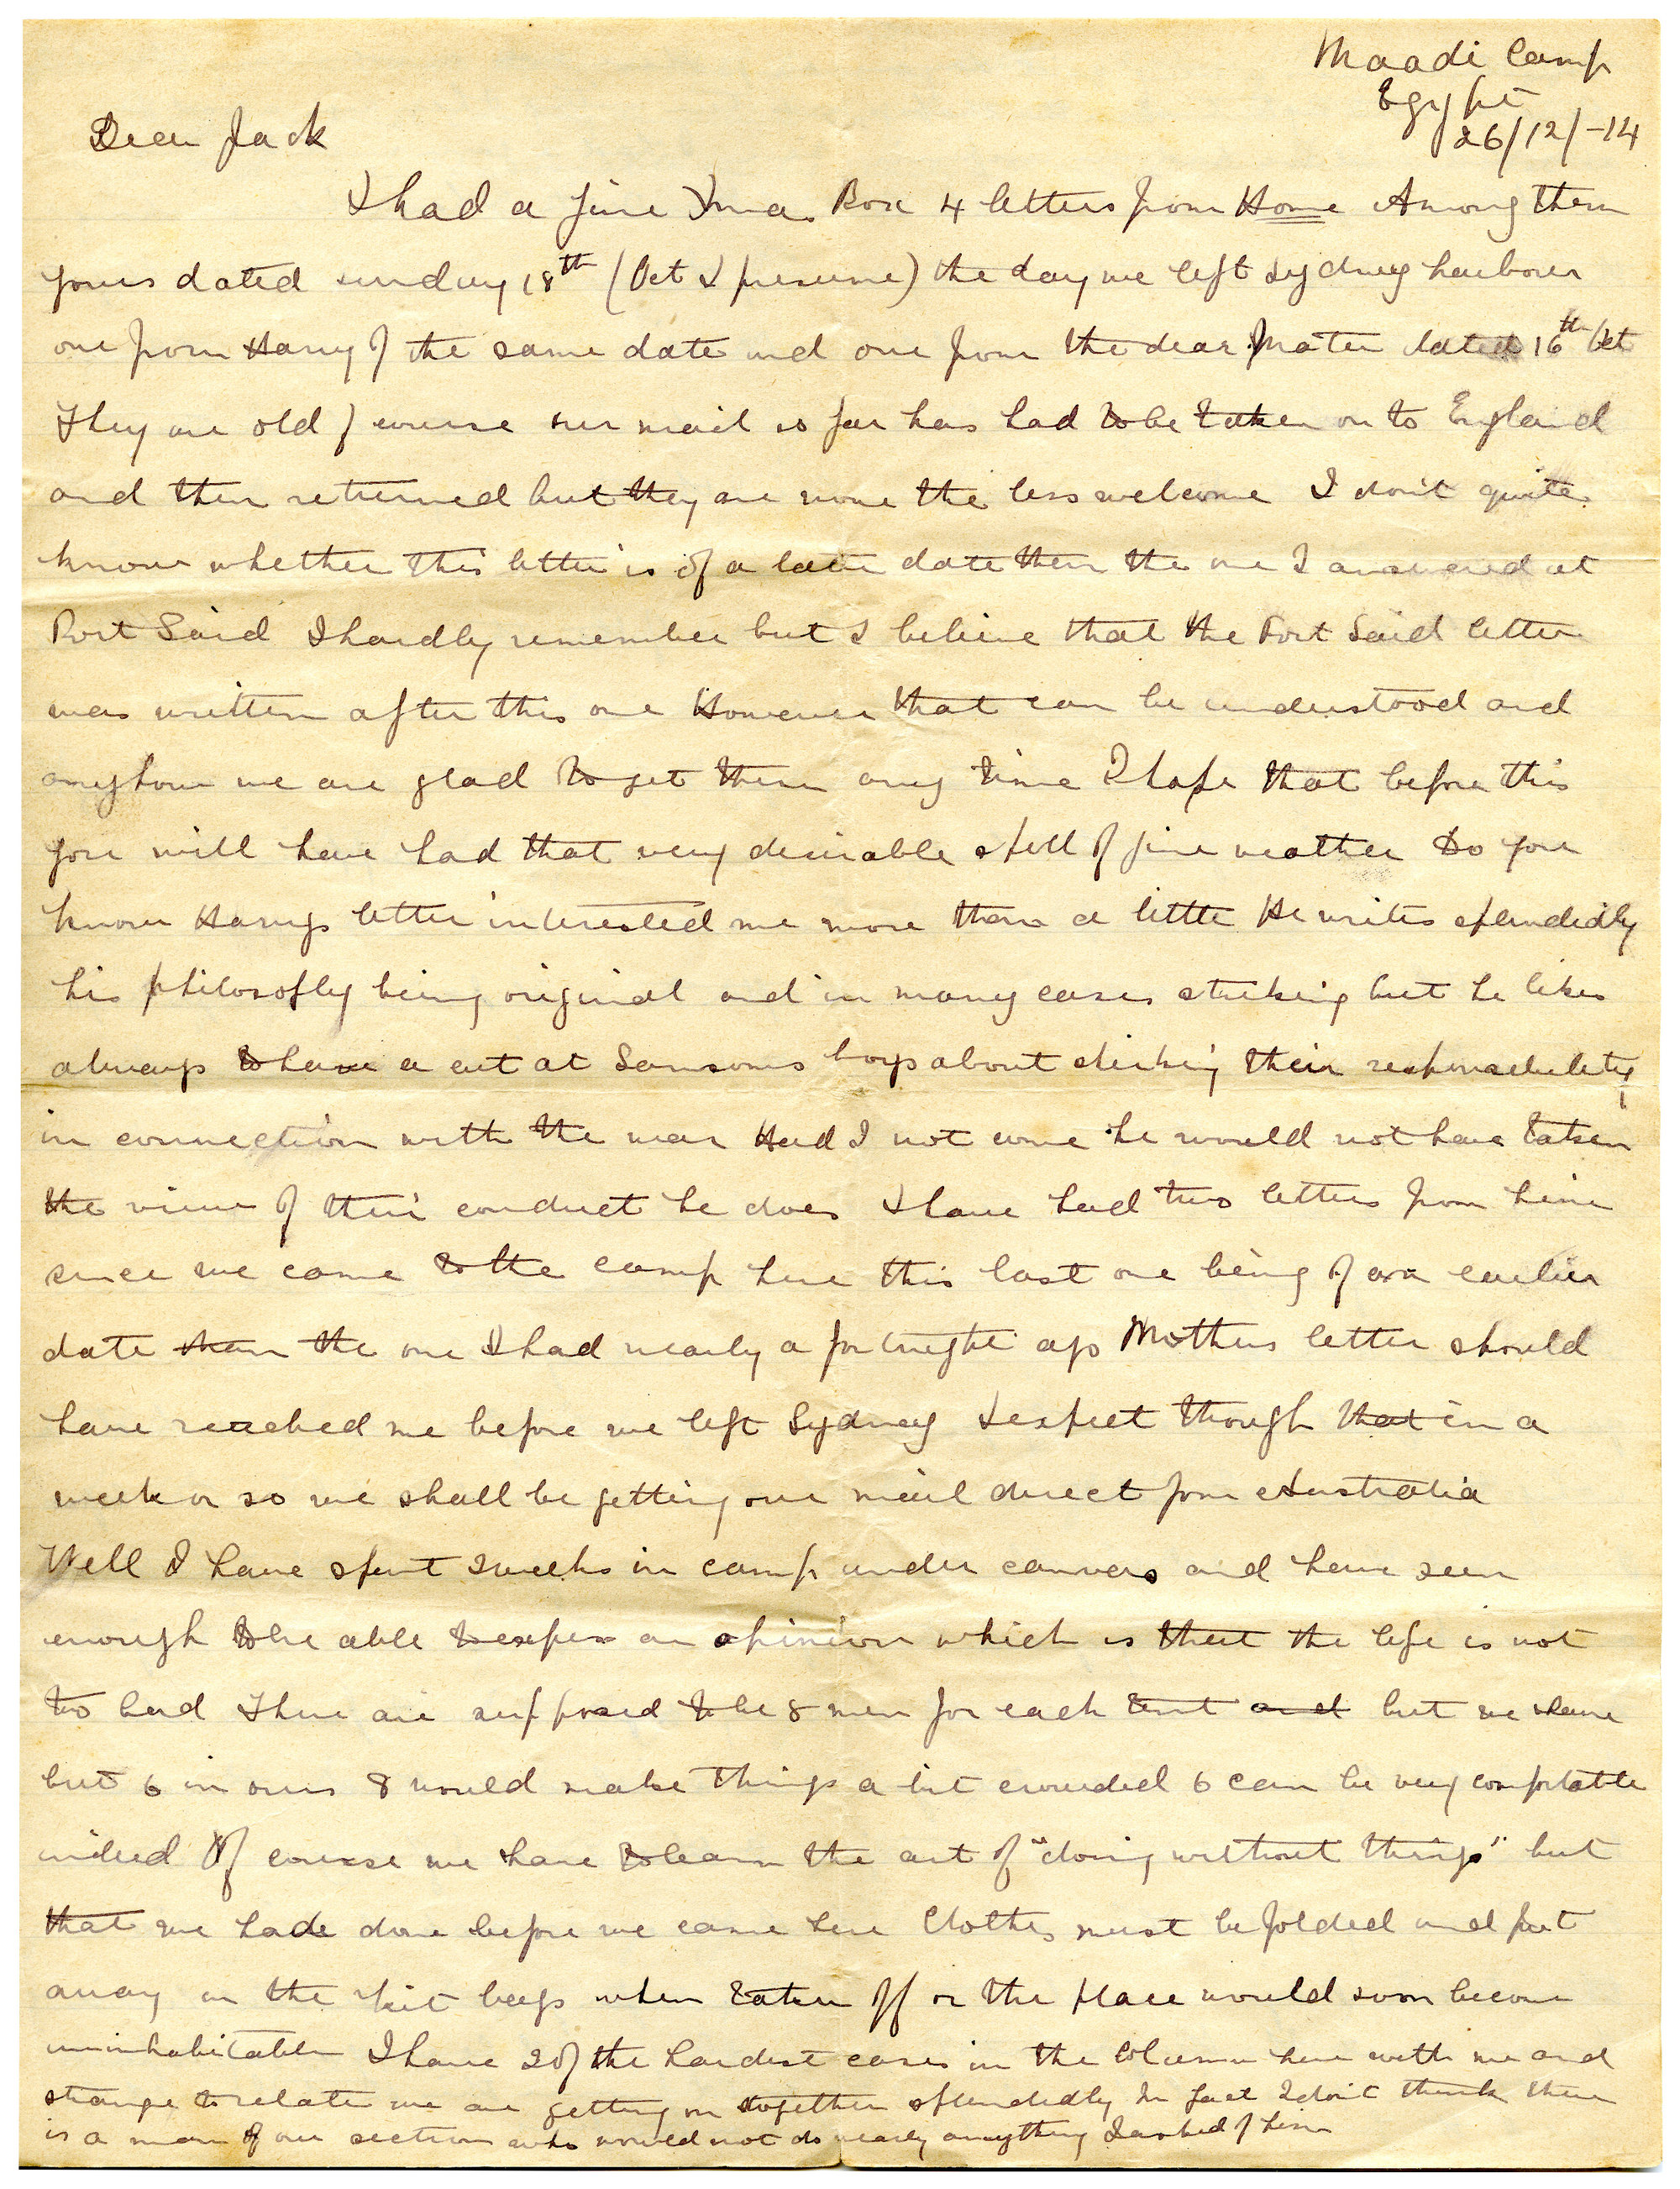 Maadi Camp
Egypt
26/12/-14
Dear Jack
I had a fine Xmas Box 4 letters from Home Among them
yours dated sunday 18th (Oct I presume) the day we left Sydney harbour
one from Harry of the same date and one from the dear Mater dated 16th Oct
They are old of course our mail so far has had to be taken on to England
and then returned but they are none the less welcome I don't quite
know whether this letter is of a later date then the one I answered at
Port Said I hardly remember but I believe that the Port Said letter
was written after this one However that can be understood and
anyhow we are glad to get them any time I hope that before this
you will have had that very desirable spell of fine weather Do you
know Harrys letter interested me more than a little He writes splendidly
his philosofhy being original and in many cases striking but he likes
always to have a cut at Sansoms boys about shirking their responsibility
in connection with the war Had I not come he would not have taken
the view of their conduct he does I have had two letters from him
since we came to the camp here this last one being of an earlier
date than the one I had nearly a fortnight ago Mothers letter should
have reached me before we left Sydney I expect though that in a
week or so we shall be getting our mail direct from Australia
Well I have spent 2 weeks in camp under canvas and have seen
enough to be able to express an opinion which is that the life is not
too bad There are supposed to be 8 men for each tent and but we have
but 6 in ours 8 would make things a bit crowded 6 can be very comfortable
indeed Of course we have to learn the art of "doing without things" but
that we had done before we came here Clothes must be folded and put
away in the kit bags when taken off or the place would soon become
uninhabitable I have 2 of the hardest cases in the Column here with me and
strange to relate we are getting on together splendidly In fact I don't think there
is a man of our section who would not do nearly anything I asked of him